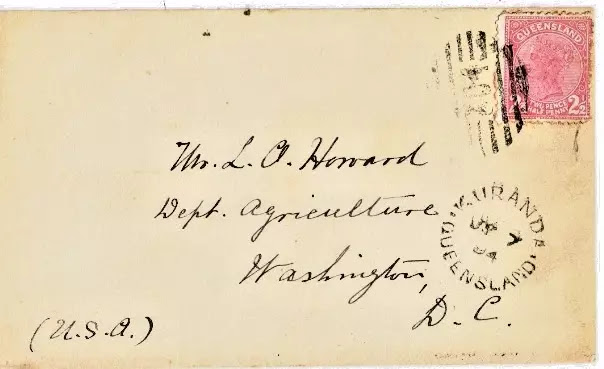 QUEENSLAND
TWO PENCE
HALF PENNY
2½
Mr. L. O. Howard
Dept. Agriculture
Washington,
D. C.
(U.S.A.)
KURANDA
7
94
QUEENSLAND